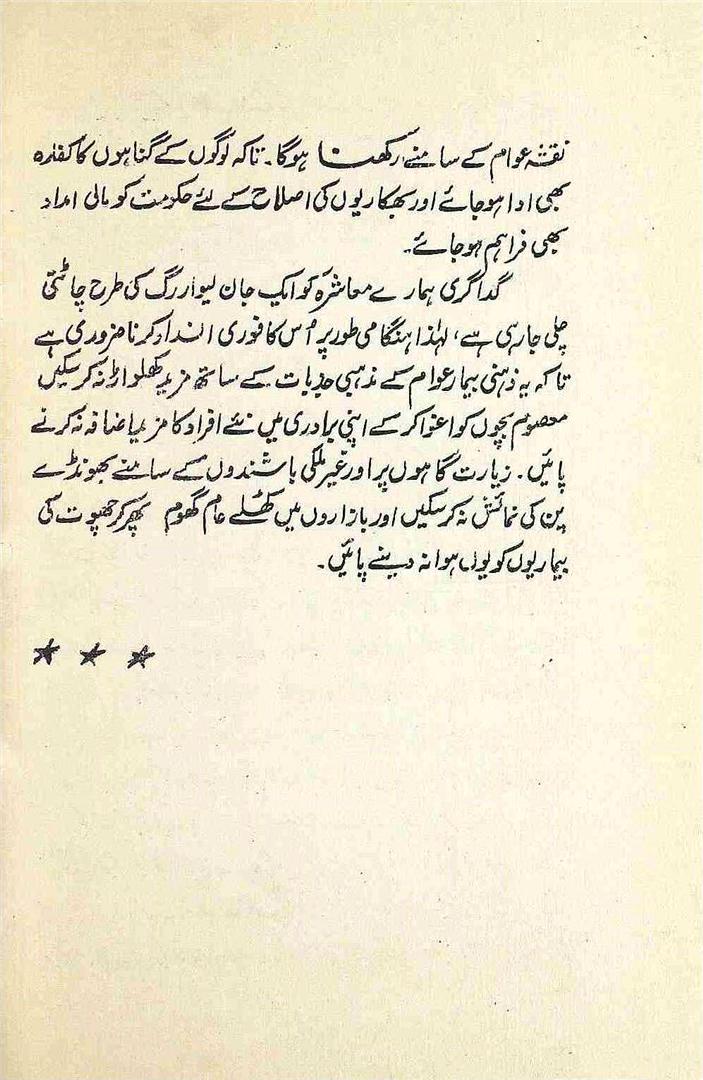 نقشہ عوام کے سامنے رکھنا ہوگا۔ تاکہ لوگوں کے گناہوں کا کفارہ
بھی ادا ہوجائے اور بھکاریوں کی اصلاح کے لئے حکومت کو مالی امداد
بھی فراہم ہوجائے۔
گداگری ہمارے معاشرہ کو ایک جان لیوا رگ کی طرح چاٹتی
چلی جارہی ہے، لہٰذا ہنگامی طور پر اُس کا فوری انسداد کرنا ضروری ہے
تاکہ یہ ذہنی بیمار عوام کے مذہبی جذبات کے ساتھ مزید کھلواڑ نہ کرسکیں
معصوم بچوں کو اغوا کرکے اپنی برادری میں نئے افراد کا مزید اضافہ نہ کرنے
پائیں۔ زیارت گاہوں پر اور غیر ملکی باشندوں کے سامنے بھونڈے
پن کی نمائش نہ کرسکیں اور بازاروں میں کھُلے عام گھوم پھر کر چھوت کی
بیماریوں کو یوں ہوا نہ دینے پائیں۔
★ ★ ★